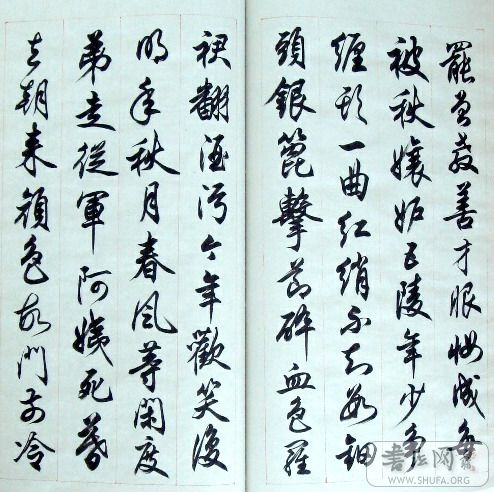 罷曾教善才服妝成每
被秋娘妒五陵年少爭
纏頭一曲紅綃不知數鈿
頭銀篦擊節碎血色羅
裙翻酒污今年歡笑復
明年秋月春風等閑度
弟走從軍阿姨死暮
去朝來顏色故門前冷
书法网
WWW.SHUFA.ORG